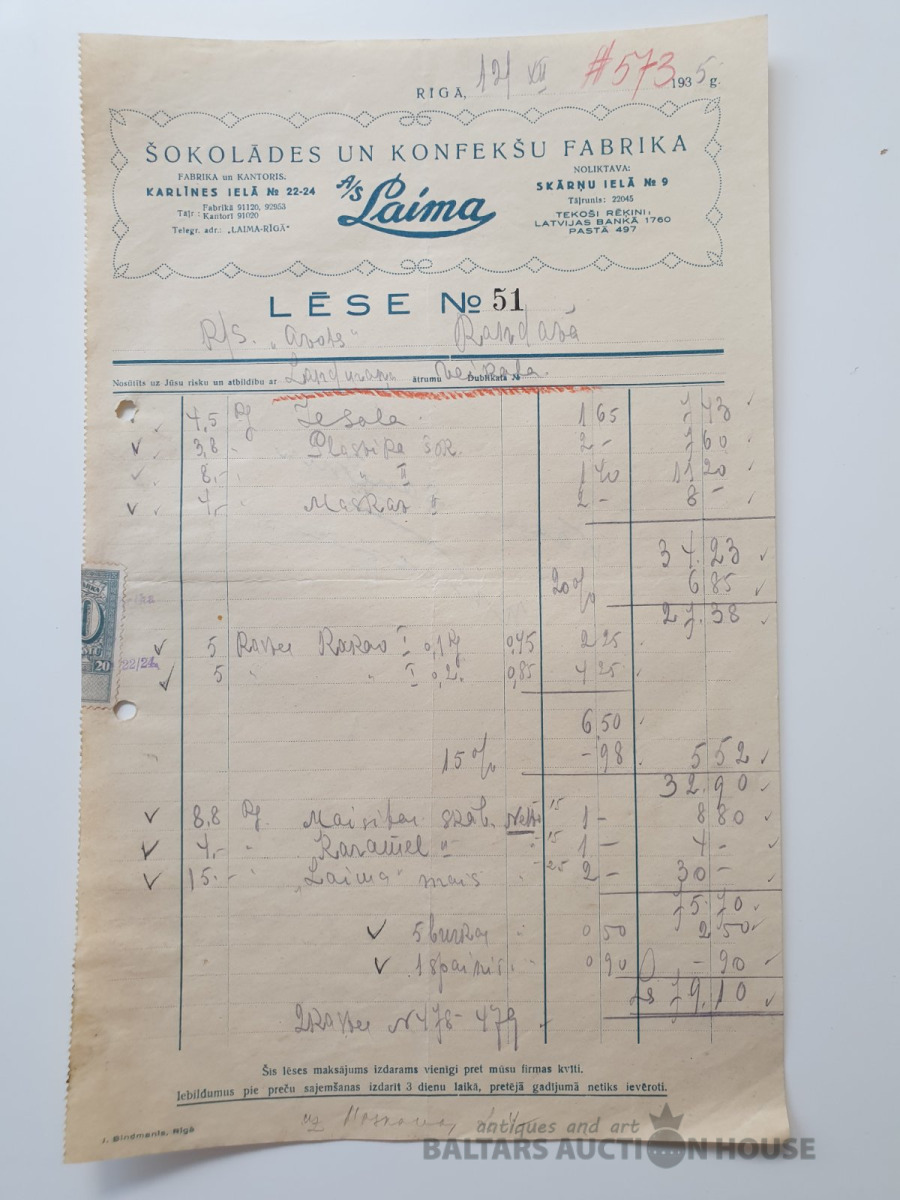 RĪGĀ, 12/ XII #573 1935 g.
ŠOKOLĀDES UN KONFEKŠU FABRIKA
FABRIKA un KANTORIS.
KARLĪNES IELĀ № 22-24
Tāļr: Fabrikā 91120, 92953
Kantorī 91020
Telegr. adr.: „LAIMA-RĪGĀ"
A/S Laima
NOLIKTAVA:
SKĀRŅU IELĀ № 9
Tāļrunis: 22045
TEKOŠI RĒĶINI:
LATVIJAS BANKĀ 1760
PASTĀ 497
LĒSE № 51
P/S. „Avots" Kandavā
Nosūtīts uz Jūsu risku un atbildību ar ātrumu Dublikata №
4,5 Kg 1 65 7 43
3,8 " Plastika šok. 2 - 7 60
8,- " " II 1 40 11 20
4,- " Maskas " 2 - 8 -
34.23
20% 6 85
27.38
5 Kakao I 0,1 Kg 0,45 2 25
5 " " I 0,2 " 0,85 4 25
6 50
15% - 98 5 52
32.90
8,8 Kg. skāb. Netto 15 1 - 8 80
4,- " Karamel " " 15 1 - 4 -
15.- " „Laima" mais " 25 2 - 30 -
75.70
5 burkas 0 50 2 50
1 spainis 0 90 - 90
Ls 79.10
2 Kastes № 478-479
Šīs lēses maksājums izdarams vienīgi pret mūsu firmas kvīti.
Iebildumus pie preču saņemšanas izdarīt 3 dienu laikā, pretējā gadījumā netiks ievēroti.
uz
J. Bindmanis, Rīgā
20
22/24
antiques and art
BALTARS AUCTION HOUSE